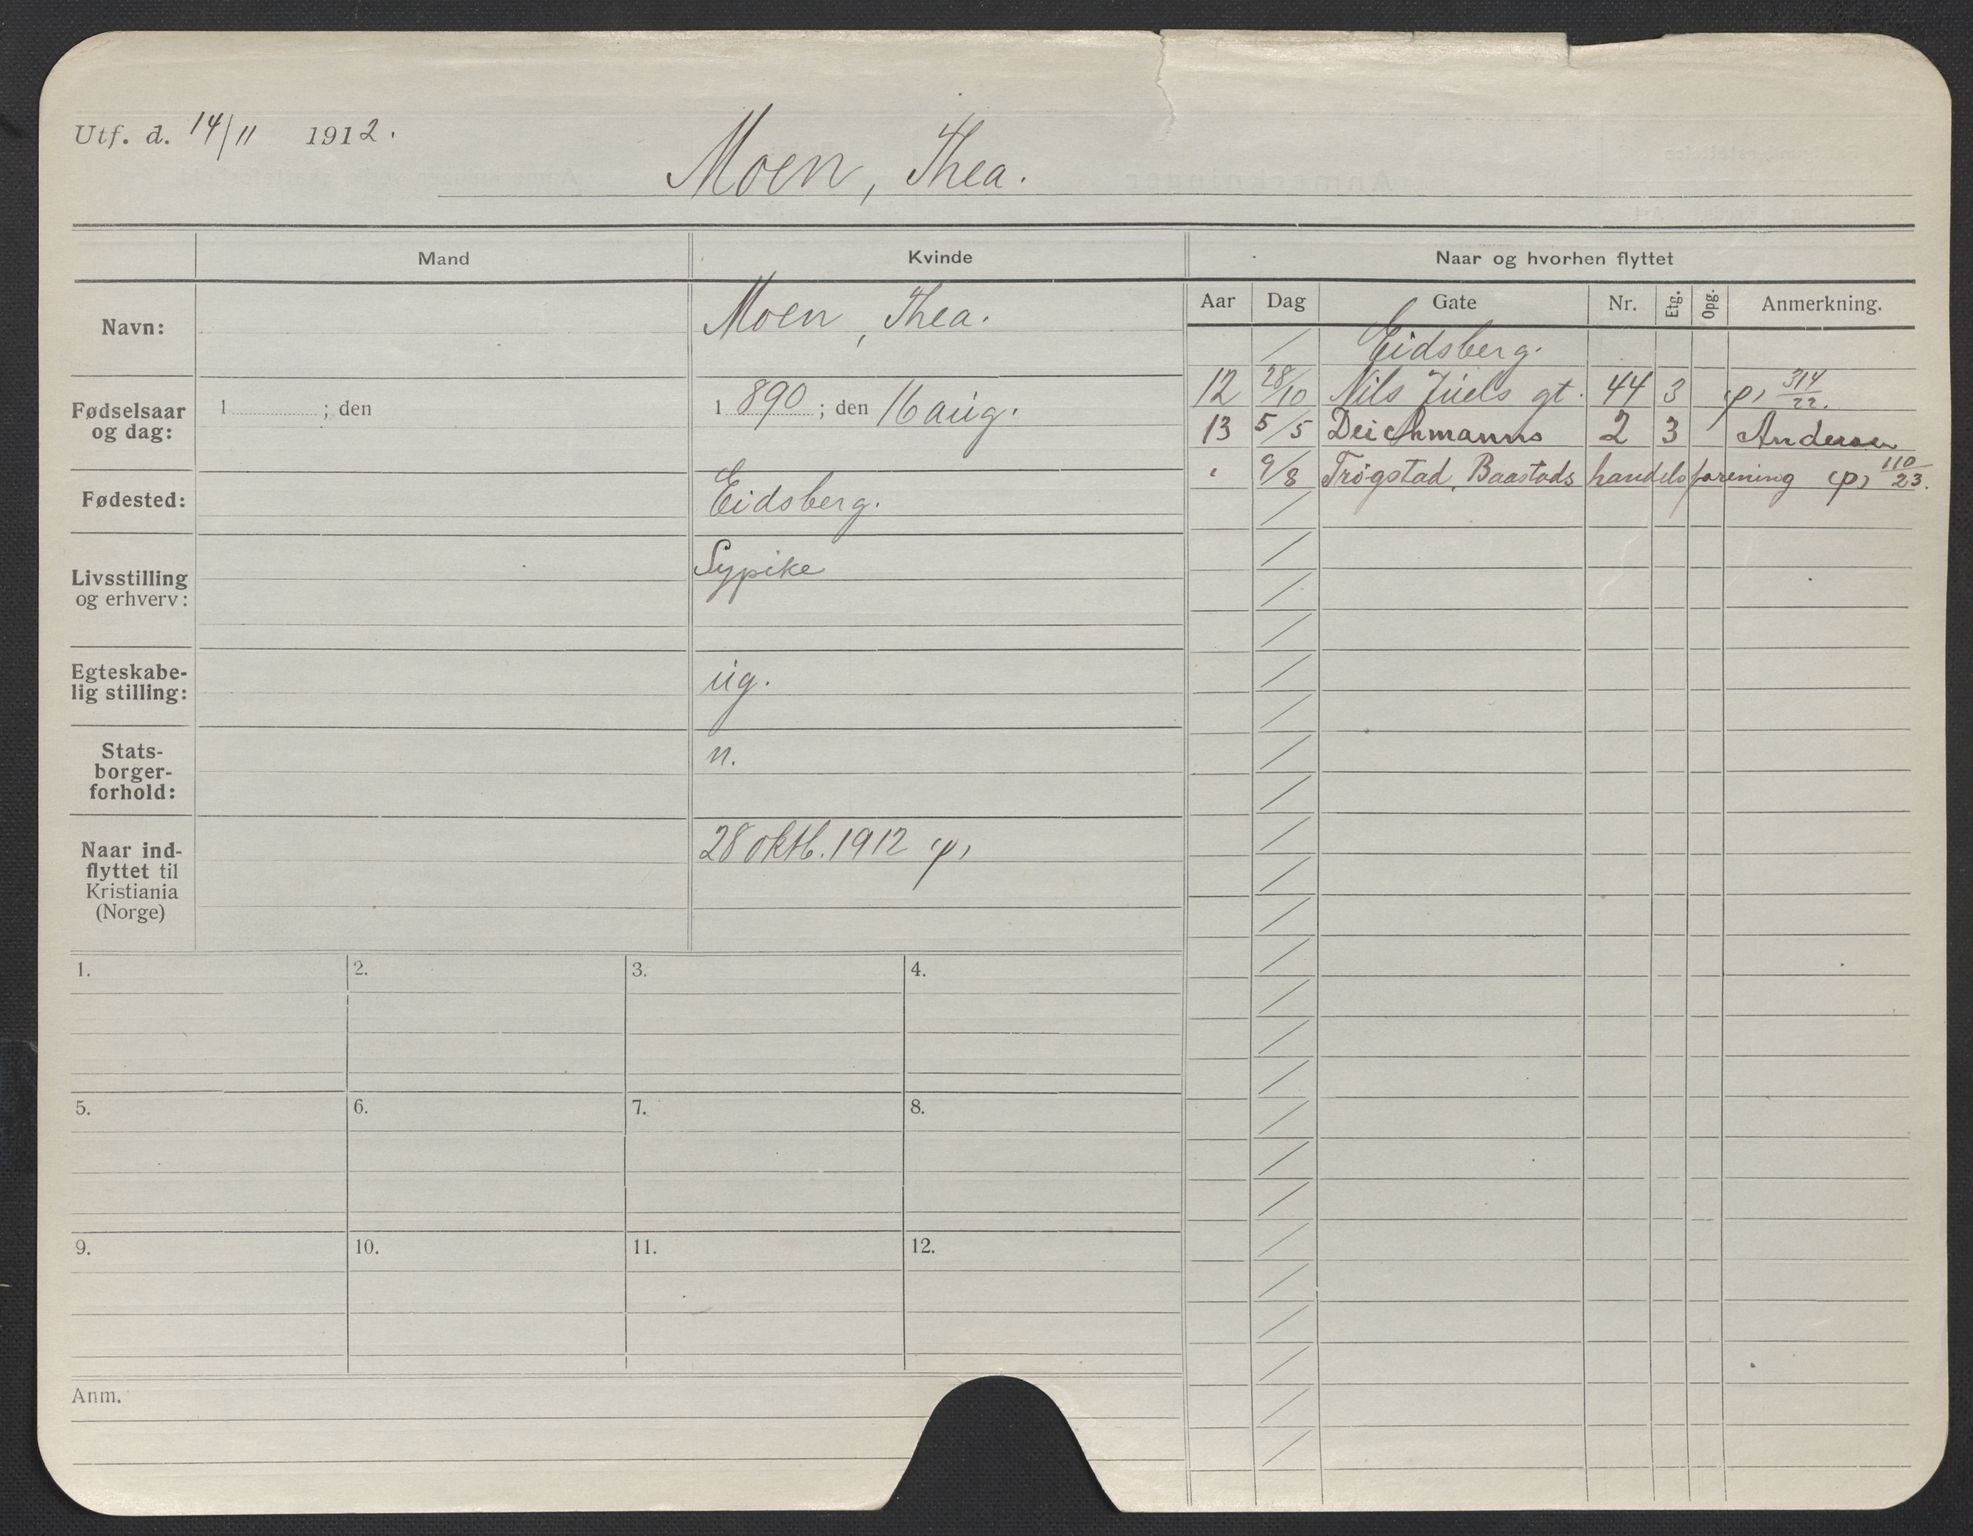 Utf. d. 14/11 1912.
Moen, Thea.
Mand
Kvinde
Naar og hvorhen flyttet
Navn:
Moen, Thea.
Fødselsaar og dag:
1 ; den
1 890 ; den 16 aug.
Fødested:
Eidsberg.
Livsstilling og erhverv:
Sypike
Egteskabe-
lig stilling:
ug.
Stats-
borger-
forhold:
n.
Naar ind-
flyttet til
Kristiania
(Norge)
28 oktb. 1912 (p)
Aar Dag Gate Nr. Etg. Opg. Anmerkning.
/ Eidsberg.
12 28/10 Nils Juels gt. 44 3 (p) 314/22.
13 5/5 Deichmanns 2 3 Andersen
" 9/8 Trøgstad, Baastads handelsforening (p) 110/23.
1. 2. 3. 4.
5. 6. 7. 8.
9. 10. 11. 12.
Anm.